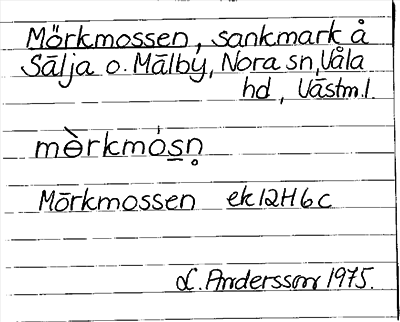 Mörkmossen, sankmark å
Sälja o. Målby, Nora sn, Våla
hd, Västm.l.
mɵ̀rkmósn̥
Mörkmossen ek 12H6c
L. Andersson 1975.